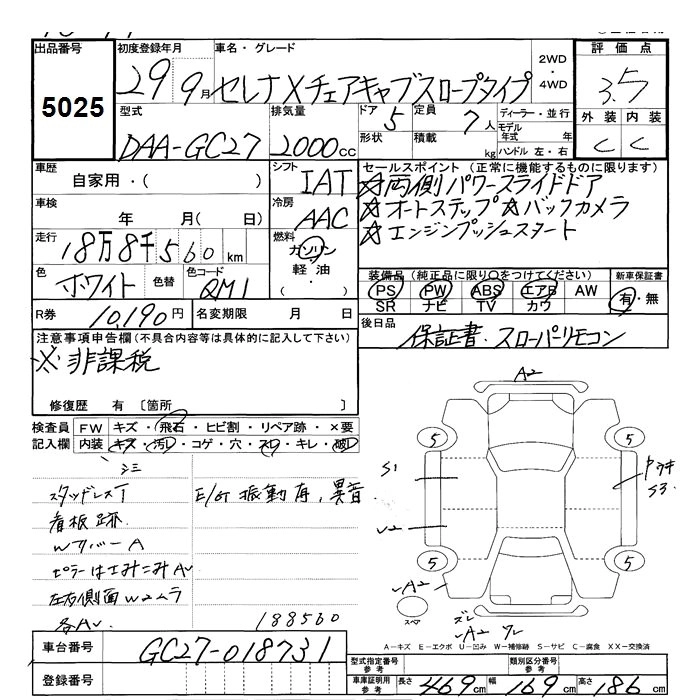 出品番号 初度登録年月 車名・グレード 2WD・4WD 評価点
5025 29 9月 セレナXチェアキャブスロープタイプ 3.5
型式 排気量 ドア 5 定員 7人 ディーラー・並行 外装 内装
DAA-GC27 2000cc 形状 積載 kg モデル年式 年 ハンドル 左・右 C C
車歴 自家用・( ) シフト IAT セールスポイント(正常に機能するものに限ります)
☆両側パワースライドドア
車検 年 月( 日) 冷房 AAC ☆オートステップ ☆バックカメラ
走行 18万8千560km 燃料 ガソリン・軽油・( ) ☆エンジンプッシュスタート
色 ホワイト 色替 色コード QM1
装備品(純正品に限り○をつけてください) 新車保証書
PS PW ABS エアB AW 有・無
SR ナビ TV カワ
R券 10,190円 名変期限 月 日
後日品 保証書・スローパーリモコン
注意事項申告欄(不具合内容等は具体的に記入して下さい)
※非課税
修復歴 有 〔箇所 〕
検査員記入欄 FW キズ・飛石・ヒビ割・リペア跡・×要
内装 キズ・汚・コゲ・穴・スレ・キレ・破
シミ
スタッドレスT E/G振動有,異音
看板跡
WカバーA
左右側面W2ムラ
各AU
188560
A2
5 5
S1 S3
U2
5 5
A2
スペア
ズレ
A2 ワレ
A-キズ E-エクボ U-凹み W-補修跡 S-サビ C-腐食 XX-交換済
車台番号 GC27-018731
登録番号
型式指定番号 参考 類別区分番号 参考
車庫証明用 参考 長さ 469cm 幅 169cm 高さ 186cm